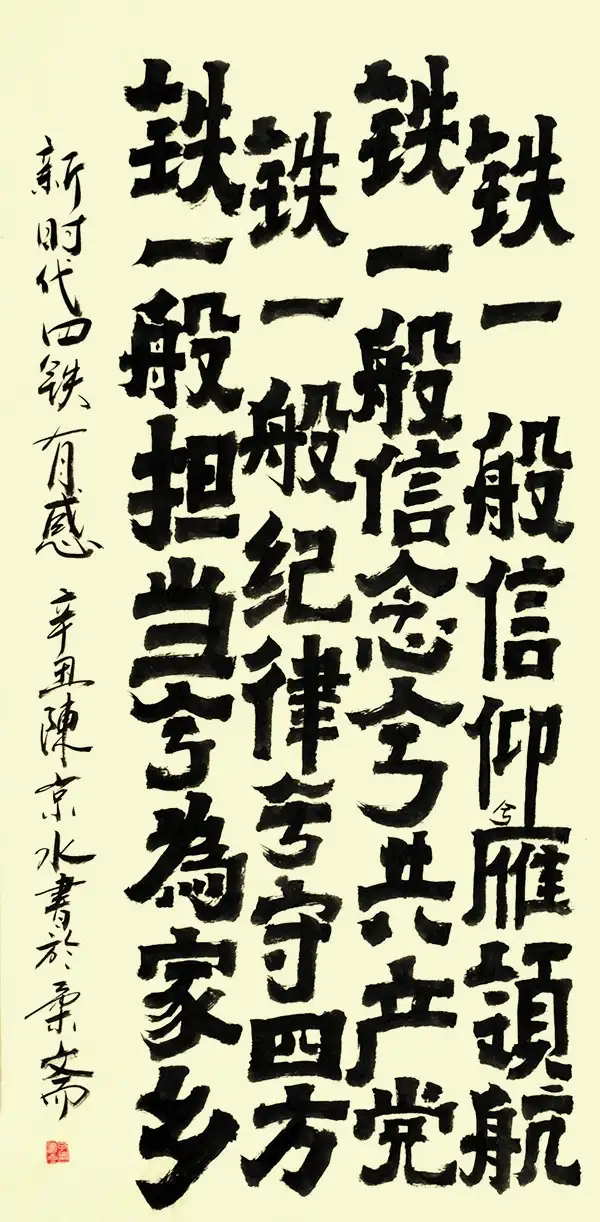 铁一般信仰兮雁領航
铁一般信念兮共产党
铁一般纪律兮守四方
铁一般担当兮為家乡
新时代四铁有感 辛丑陳京水書於柔斋